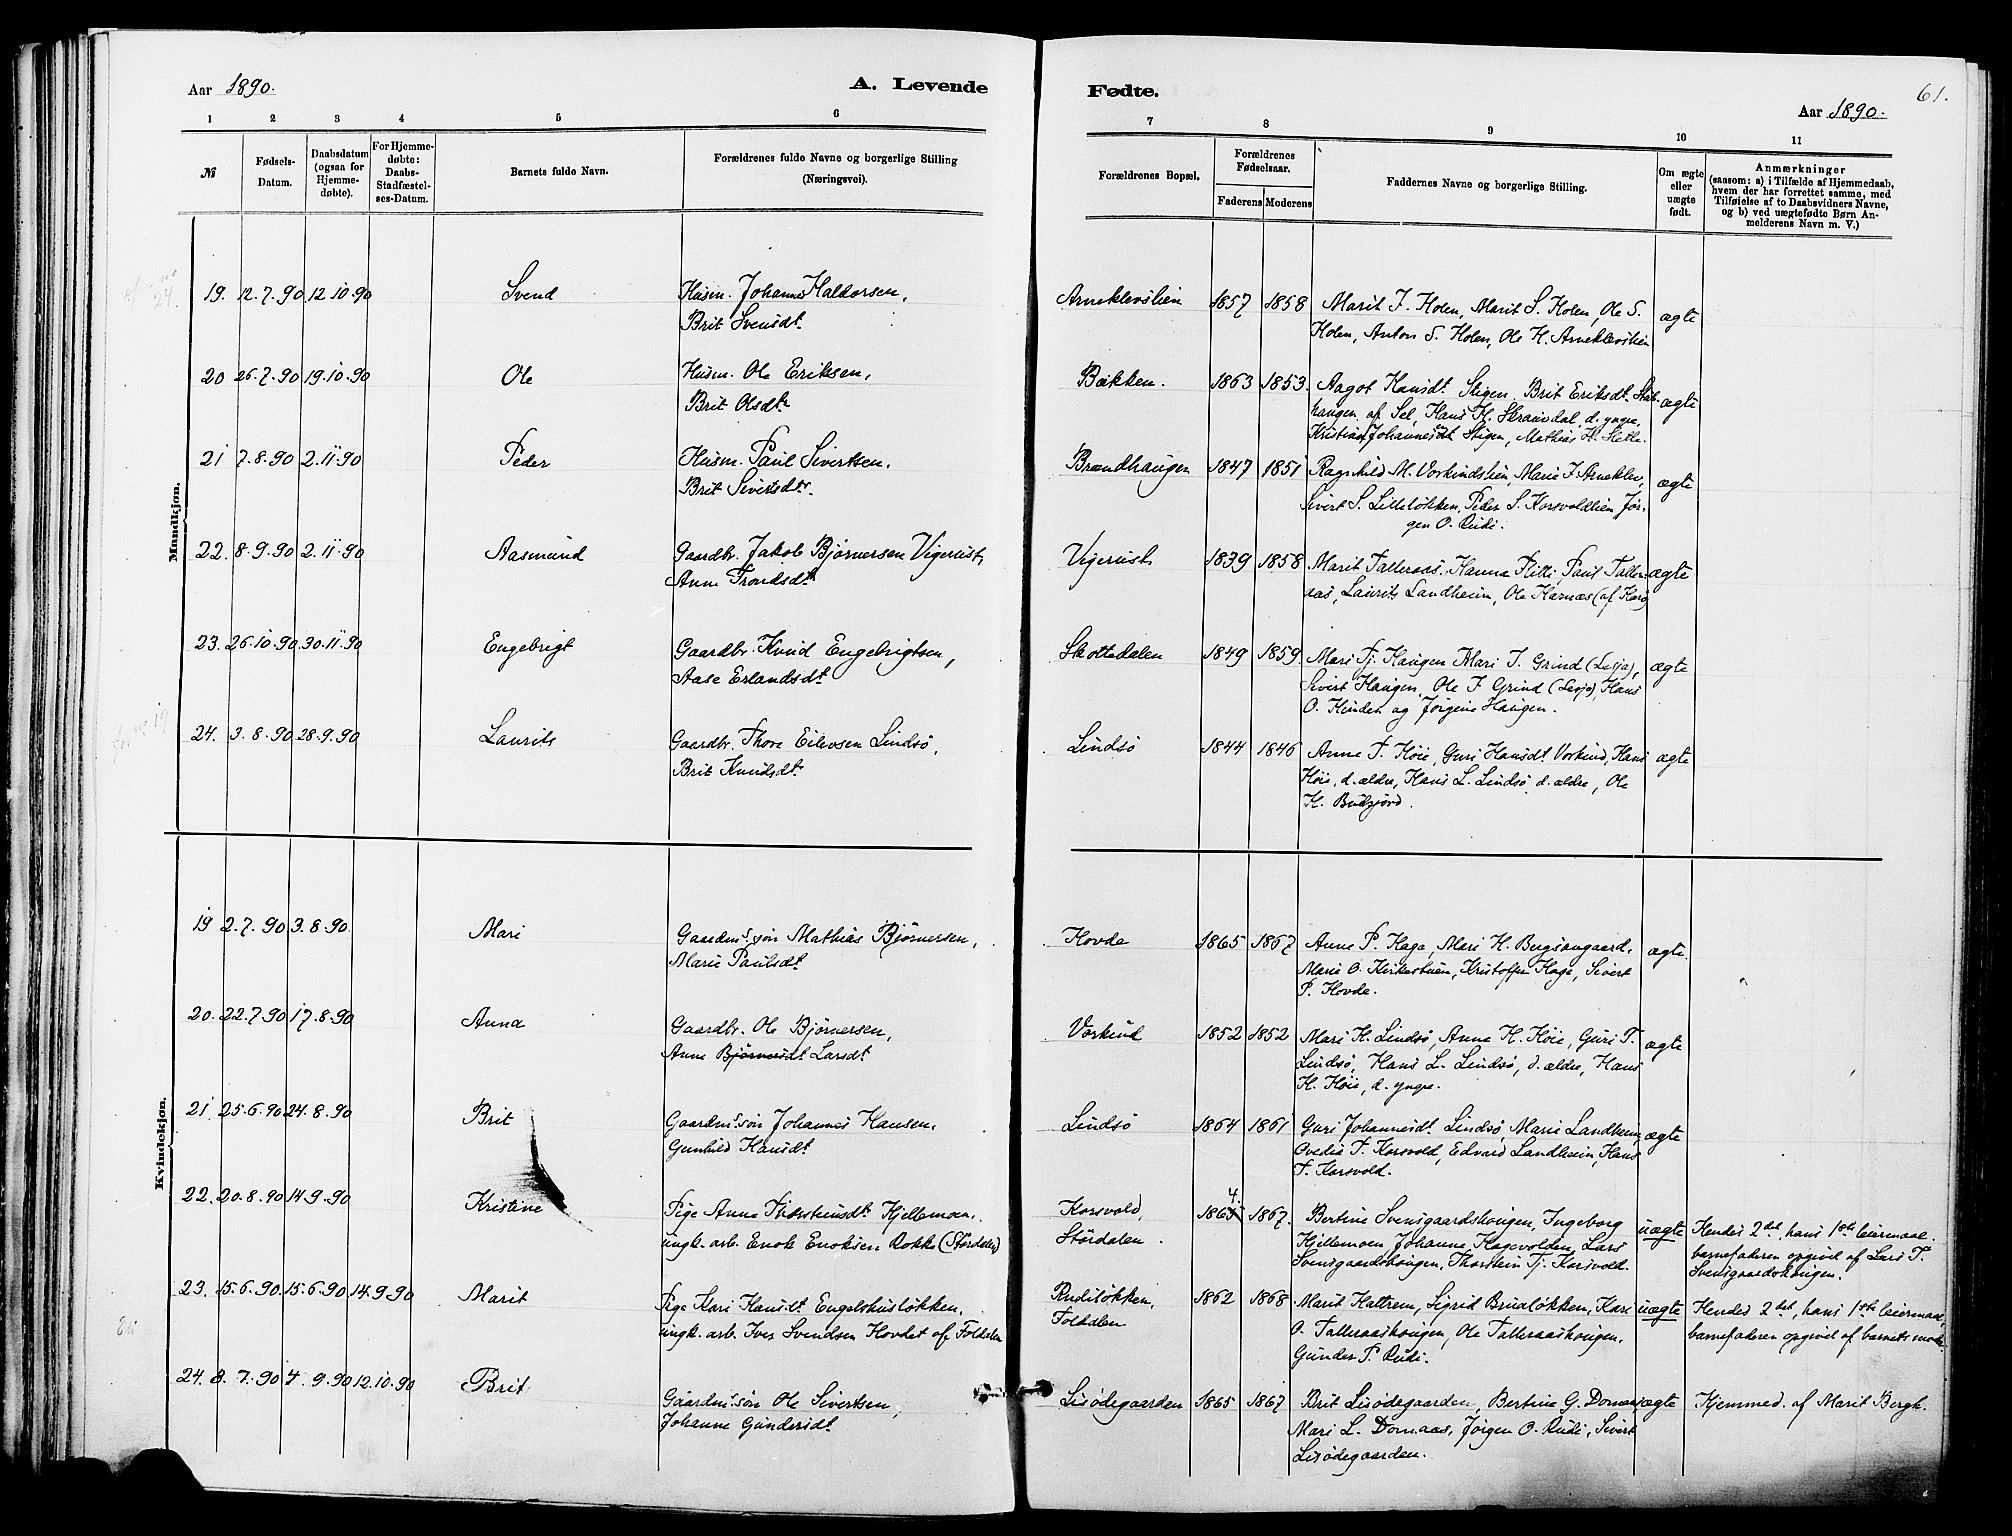 Aar 1890.
A. Levende
Fødte.
61.
Aar 1890.
1 2 3 4 5 6 7 8 9 10 11
№
Fødsels-
Datum.
Daabsdatum
(ogsaa for
Hjemme-
døbte).
For Hjemme-
døbte:
Daabs-
Stadfæstel-
ses-Datum.
Barnets fulde Navn.
Forældrenes fulde Navne og borgerlige Stilling
(Næringsvei).
Forældrenes Bopæl.
Forældrenes
Fødselsaar.
Faderens Moderens
Faddernes Navne og borgerlige Stilling.
Om ægte
eller
uægte
født.
Anmærkninger
(saasom: a) i Tilfælde af Hjemmedaab,
hvem der har forrettet samme, med
Tilføielse af to Daabsvidners Navne,
og b) ved uægtefødte Børn An-
melderens Navn m. V.)
Mandkjøn.
19. 12.7.90 12.10.90 Svend Husm. Johannes Haldorsen, Arneklevslien 1857 1858 Marit J. Holen, Marit S. Holen, Ole S. ægte
Brit Svensdt. Holen, Anton S. Holen, Ole H. Arneklevslien
20 26.7.90 19.10.90 Ole Husm. Ole Eriksen, Bakken. 1863 1853. Aagot Hansdt. Stigen. Brit Eriksdt. ægte
Brit Olsdtr haugen af Sel, Hans H. Skramdal, d. yngre,
Johannes Stigen, Mathias H. Sletle.
21 7.8.90 2.11.90 Peder Husm. Paul Sivertsen. Brændhaugen 1847 1851 Ragnhild M. Vorkindslien, Marie J. Arneklev, ægte
Brit Sivertsdtr. Sivert S. Lilleløkken, Peder S. Korsvoldlien Jør-
gen O. Rudi.
22. 8.9.90 2.11.90 Aasmund Gaardbr. Jakob Bjørnersen Vigerust, Vigerust 1839 1858 Marit Talleraas. Hanna Kitti, Paul Taller- ægte
Anne Trondsdt. aas, Laurits Landheim, Ole Harnæs
23. 26.10.90 30.11.90 Engebrigt Gaardbr. Knud Engebrigtsen, Skottedalen 1849 1859. Mari Tj. Haugen Mari J. Grind (Lesja), ægte
Aase Erlandsdt. Sivert Haugen, Ole J. Grind (Lesja), Hans
O. Kinden og Jørgine Haugen.
24. 3.8.90 28.9.90 Laurits Gaardbr. Thore Eilevsen Lindsø, Lindsø 1844 1846 Anne T. Høie, Guri Hansdt. Vorkind, Hans ægte
Brit Knudsdt. Høie, d. ældre, Hans L. Lindsø d. ældre, Ole
H. Budgjord.
Kvindekjøn.
19 2.7.90 3.8.90 Mari Gaardms.søn Mathias Bjørnersen, Hovde 1865 1867 Anne P. Hage, Mari H. Bergsangaard, ægte
Marie Paulsdt. Marie O. Kirkestuen, Kristoffer Hage, Sivert
P. Hovde.
20. 22.7.90 17.8.90 Anna Gaardbr. Ole Bjørnersen, Vorkind 1852 1852 Mari H. Lindsø, Anne H. Høie, Guri T. ægte
Anne Bjørnersdt Larsdt. Lindsø, Hans L. Lindsø, d. ældre, Hans
H. Høie, d. yngre.
21 25.6.90 24.8.90 Brit Gaardms.søn Johannes Hansen, Lindsø 1864 1861 Guri Johannesdt. Lindsø, Marie Landheim, ægte
Gunhild Hansdt. Ovedia T. Korsvold, Edvard Landheim, Hans
T. Korsvold.
22. 20.8.90 14.9.90 Kristine Pige Anne Thorsteinsdt. Hjellemoen, Korsvold, 1864 1867. Bertine Svensgaardshougen, Ingeborg uægte Hendes 2det, hans 1ste leiermaal.
ungk. arb. Enok Enoksen Rokke (Størdalen) Størdalen. Hjellemoen Johanne Hagevolden, Lars barnefaderen opgivet af Lars T.
Svensgaardshougen, Thorstein Tj. Korsvold. Svensgaardshougen.
23. 15.6.90 15.6.90 14.9.90 Marit Pige Kari Hansdt. Engelshusløkken, Rudiløkken, 1862 1868 Marit Hattrem, Sigrid Brudløkken, Kari uægte Hendes 2det, hans 1ste leiermaal,
ungk. arb. Iver Svendsen Hovdet af Foldalen Foldalen O. Talleraashougen, Ole Talleraashougen. barnefaderen opgivet af barnets moder.
Gunder P. Rudi.
24. 8.7.90 4.9.90 12.10.90 Brit Gaardms.søn Ole Sivertsen, Lisødegaarden 1865 1867 Brit Lisødegaarden, Bertine G. Domaas ægte Hjemmed. af Marit Bergh.
Johanne Gundersdt. Mari L. Domaas, Jørgen O. Rudi, Sivert
Lisødegaarden.